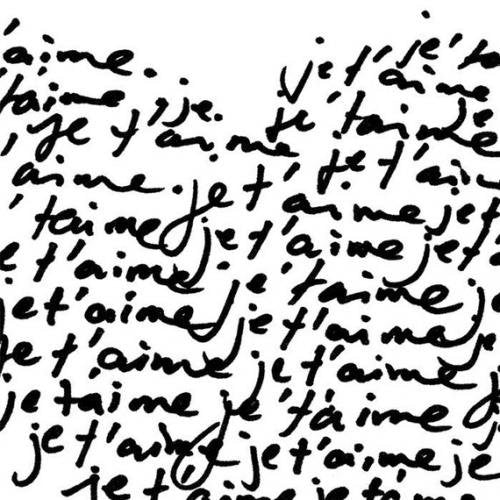 'aime. je t'aime je t'a
taime, je. je t'aime je
, je t'aime je t'ai
aime. je t'aime je t
'taime je t'aime je t'
e t'aime je t'aime j
je t'aime je t'aime je
je t'aime je t'aime j
je taime je t'aime
je t'aime je t'aime je
je t'aime je ta